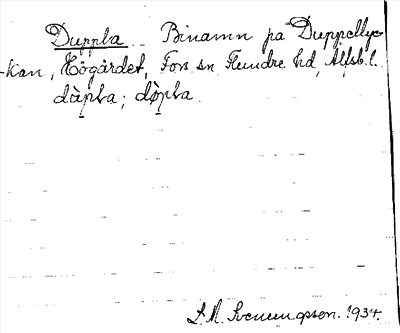 Duppla Binamn på Duppellyc-
kan, Högärdet, Fors sn Flundre hd, Älfsb. l.
dàpla; dòpla
S.M. Svenungsson. 1934.